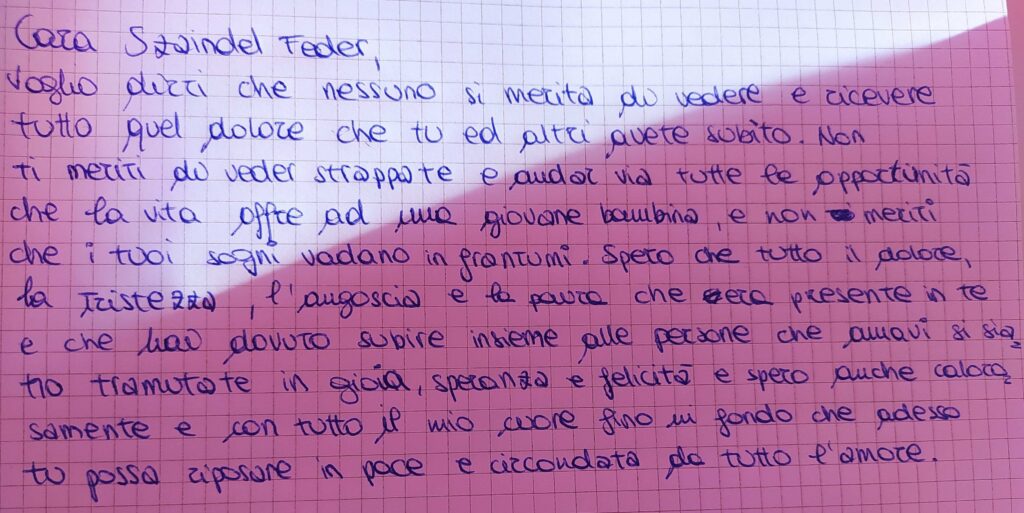 Cara Szaindel Feder,
voglio dirti che nessuno si merita di vedere e ricevere
tutto quel dolore che tu ed altri avete subito. Non
ti meriti di veder strappate e andar via tutte le opportunità
che la vita offre ad una giovane bambina, e non meriti
che i tuoi sogni vadano in frantumi. Spero che tutto il dolore,
la tristezza, l'angoscia e la paura che era presente in te
e che hai dovuto subire insieme alle persone che amavi si sia=
no tramutate in gioia, speranza e felicità e spero anche caloro=
samente e con tutto il mio cuore fino in fondo che adesso
tu possa riposare in pace e circondata da tutto l'amore.